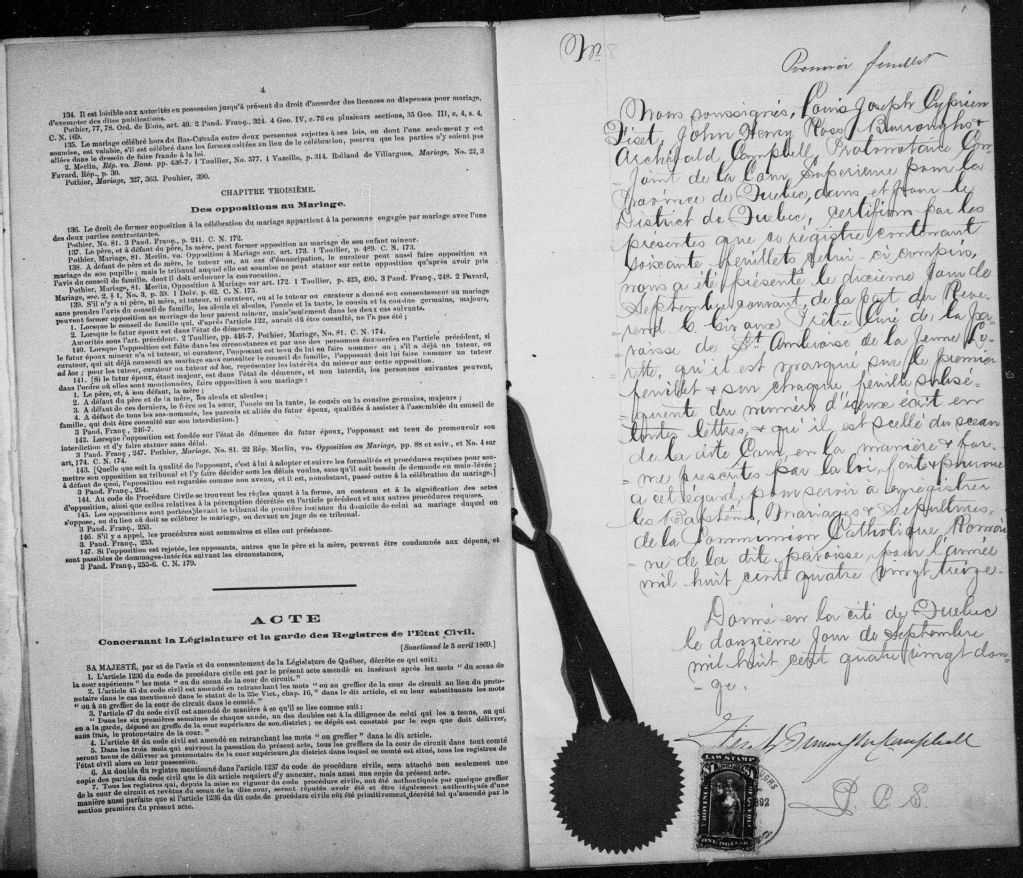 4
134. Il est loisible aux autorités en possession jusqu'à présent du droit d'accorder des licences ou dispenses pour mariage,
d'exempter des dites publications.
Pothier, 77, 78. Ord. de Blois, art. 40. 2 Pand. Franç., 324. 4 Geo. IV, c. 76 en plusieurs sections, 35 Geo. III, c. 4, s. 4,
C. N. 169.
135. Le mariage célébré hors du Bas-Canada entre deux personnes sujettes à ses lois, ou dont l'une seulement y est
soumise, est valable, s'il est célébré dans les formes usitées au lieu de la célébration, pourvu que les parties n'y soient pas
allées dans le dessein de faire fraude à la loi.
2 Merlin, Rép. vo. Bans. pp. 436-7. 1 Toullier, No. 577. 1 Vazeille, p. 314. Rolland de Villargues, Mariage, No. 22, 3
Favard. Rép., p. 30.
Pothier, Mariage, 327, 363. Pouhier, 390.
CHAPITRE TROISIÈME.
Des oppositions au Mariage.
136. Le droit de former opposition à la célébration du mariage appartient à la personne engagée par mariage avec l'une
des deux parties contractantes.
Pothier, No. 81. 3 Pand. Franç., p. 241. C. N. 172.
137. Le père, et à défaut du père, la mère, peut former opposition au mariage de son enfant mineur.
Pothier, Mariage, 81. Merlin, vo. Opposition à Mariage, sur art. 173. 1 Toullier, p. 489. C. N. 173.
138. A défaut de père et de mère, le tuteur ou, au cas d'émancipation, le curateur peut aussi faire opposition au
mariage de son pupille; mais le tribunal auquel elle est soumise ne peut statuer sur cette opposition qu'après avoir pris
l'avis du conseil de famille, dont il doit ordonner la convocation.
Pothier, Mariage, 81. Merlin, Opposition à Mariage sur art. 172. 1 Toullier, p. 425, 490. 3 Pand. Franç., 248. 2 Favard,
Mariage, sec. 2, § 1, No. 3, p. 59. 1 Delv. p. 62. C. N. 175.
139. S'il n'y a ni père, ni mère, ni tuteur, ni curateur, ou si le tuteur ou curateur a donné son consentement au mariage
sans prendre l'avis du conseil de famille, les aïeuls et aïeules, l'oncle et la tante, le cousin et la cousine germains, majeurs,
peuvent former opposition au mariage de leur parent mineur, mais seulement dans les deux cas suivants.
1. Lorsque le conseil de famille qui, d'après l'article 122, aurait dû être consulté, ne l'a pas été;
2. Lorsque le futur époux est dans l'état de démence.
Autorités sous l'art. précédent. 2 Toullier, pp. 446-7. Pothier, Mariage, No. 81. C. N. 174.
140. Lorsque l'opposition est faite dans les circonstances et par une des personnes énumérées en l'article précédent, si
le futur époux mineur n'a ni tuteur, ni curateur, l'opposant est tenu de lui en faire nommer un; s'il a déjà un tuteur, ou
curateur, qui ait déjà consenti au mariage sans consulter le conseil de famille, l'opposant doit lui faire nommer un tuteur
ad hoc; pour les tuteur, curateur ou tuteur ad hoc, représenter les intérêts du mineur sur cette opposition.
141. [Si le futur époux, étant majeur, est dans l'état de démence, et non interdit, les personnes suivantes peuvent,
dans l'ordre où elles sont mentionnées, faire opposition à son mariage:
1. Le père, et, à son défaut, la mère;
2. A défaut du père et de la mère, les aïeuls et aïeules;
3. A défaut de ces derniers, le frère ou la sœur, l'oncle ou la tante, le cousin ou la cousine germains, majeurs;
4. A défaut de tous les sus-nommés, les parents et alliés du futur époux, qualifiés à assister à l'assemblée du conseil de
famille, qui doit être consulté sur son interdiction.]
3 Pand. Franç., 246-7.
142. Lorsque l'opposition est fondée sur l'état de démence du futur époux, l'opposant est tenu de promouvoir son
interdiction et d'y faire statuer sans délai.
3 Pand. Franç., 247. Pothier, Mariage. No. 81. 22 Rép. Merlin, vo. Opposition au Mariage, pp. 88 et suiv., et No. 4 sur
art, 174. C. N. 174.
143. [Quelle que soit la qualité de l'opposant, c'est à lui à adopter et suivre les formalités et procédures requises pour sou-
mettre son opposition au tribunal et l'y faire décider sous les délais voulus, sans qu'il soit besoin de demande en main-lévée;
à défaut de quoi, l'opposition est regardée comme non avenu, et il est, nonobstant, passé outre à la célébration du mariage.]
3 Pand. Franç., 254.
144. Au code de Procédure Civile se trouvent les règles quant à la forme, au contenu et à la signification des actes
d'opposition, ainsi que celles relatives à la péremption décrétée en l'article précédent et aux autres procédures requises.
145. Les oppositions sont portées devant le tribunal de première instance du domicile de celui au mariage duquel on
s'oppose, ou du lieu où doit se célébrer le mariage, ou devant un juge de ce tribunal.
3 Pand. Franç., 253.
146. S'il y a appel, les procédures sont sommaires et elles ont préséance.
3. Pand. Franç., 253.
147. Si l'opposition est rejetée, les opposants, autres que le père et la mère, peuvent être condamnés aux dépens, et
sont passibles de dommages-intérêts suivant les circonstances,
3 Pand. Franç., 255-6. C. N. 179.
ACTE
Concernant la Législature et la garde des Registres de l'Etat Civil.
[Sanctionné le 5 avril 1869.]
SA MAJESTÉ, par et de l'avis et du consentement de la Législature de Québec, décrète ce qui suit:
1. L'article 1236 du code de procédure civile est par le présent acte amendé en insérant après les mots " du sceau de
la cour supérieure " les mots " ou du sceau de la cour de circuit."
2. L'article 45 du code civil est amendé en retranchant les mots " ou au greffier de la cour de circuit au lieu du proto-
notaire dans le cas mentionné dans le statut de la 25e Vict., chap. 16," dans le dit article, et en leur substituant les mots
" ou à un greffier de la cour de circuit dans le comté."
3. l'article 47 du code civil est amendé de manière à ce qu'il se lise comme suit:
" Dans les six premières semaines de chaque année, un des doubles est à la diligence de celui qui les a tenus, ou qui
en a la garde, déposé au greffe de la cour supérieure de son district; ce dépôt est constaté par le reçu que doit délivrer,
sans frais, le protonotaire de la cour."
4. L'article 48 du code civil est amendé en retranchant les mots " ou greffier " dans le dit article.
5. Dans les trois mois qui suivront la passation du présent acte, tous les greffiers de la cour de circuit dans tout comté
seront tenus de délivrer au protonotaire de la cour supérieure du district dans lequel ce comté est situé, tous les registres de
l'état civil alors en leur possession.
6. Au double du registre mentionné dans l'article 1237 du code de procédure civile, sera attaché non seulement une
copie des parties du code civil que le dit article requiert d'y annexer, mais aussi une copie du présent acte.
7. Tous les registres qui, depuis la mise en vigueur du code de procédure civile, ont été authentiqués par quelque greffier
de la cour de circuit et revêtus du sceau de la dite cour, seront réputés avoir été et être légalement authentiqués d'une
manière aussi parfaite que si l'article 1236 du dit code de procédure civile eût été primitivement décrété tel qu'amendé par la
section première du présent acte.
No 8
Premier feuillet
Nous soussignés, Louis Joseph Cyprien
Fiset, John Henry Ross Burroughs &
Archibald Campbell, Protonotaire Con-
-joint de la Cour Supérieure pour la
Province de Quebec, dans et pour le
District de Quebec, certifions par les
présentes que ce régistre contenant
soixante feuillets, celui ci compris,
nous a été présenté le dixième jour de
Septembre courant, de la part du Reve-
-rend G. Giroux Prêtre Curé de la pa-
-roisse de St Ambroise de la Jeune Lo-
-rette, qu'il est marqué sur le premier
feuillet & sur chaque feuillet subsé-
-quent du numéro d'iceux écrit en
toutes lettres, & qu'il est scellé du sceau
de la dite Cour, en la manière & for-
-me prescrites par la loi, faite & pourvue
à cet égard, pour servir à enregistrer
les Baptêmes, Mariages & Sépultures,
de la Communion Catholique, Romai-
-ne de la dite paroisse, pour l'année
mil huit cent quatre vingt treize.
Donné en la cité de Quebec
le douzième jour de Septembre
mil huit cent quatre vingt dou-
-ze.
Fiset Burroughs & Campbell
P. C. S.
LAW STAMP
$1 $1
PROVINCE
QUEBEC
ONE DOLLAR